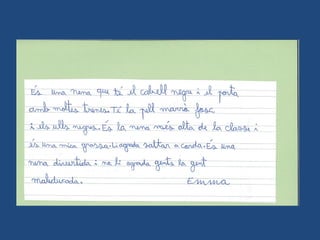 És una nena que té el cabell negre i el porta
amb moltes trenes. Té la pell marró fosc
i els ulls negres. És la nena més alta de la classe i
és una mica grossa. Li agrada saltar a corda. És una
nena divertida i no li agrada gents la gent
maleducada. Emma